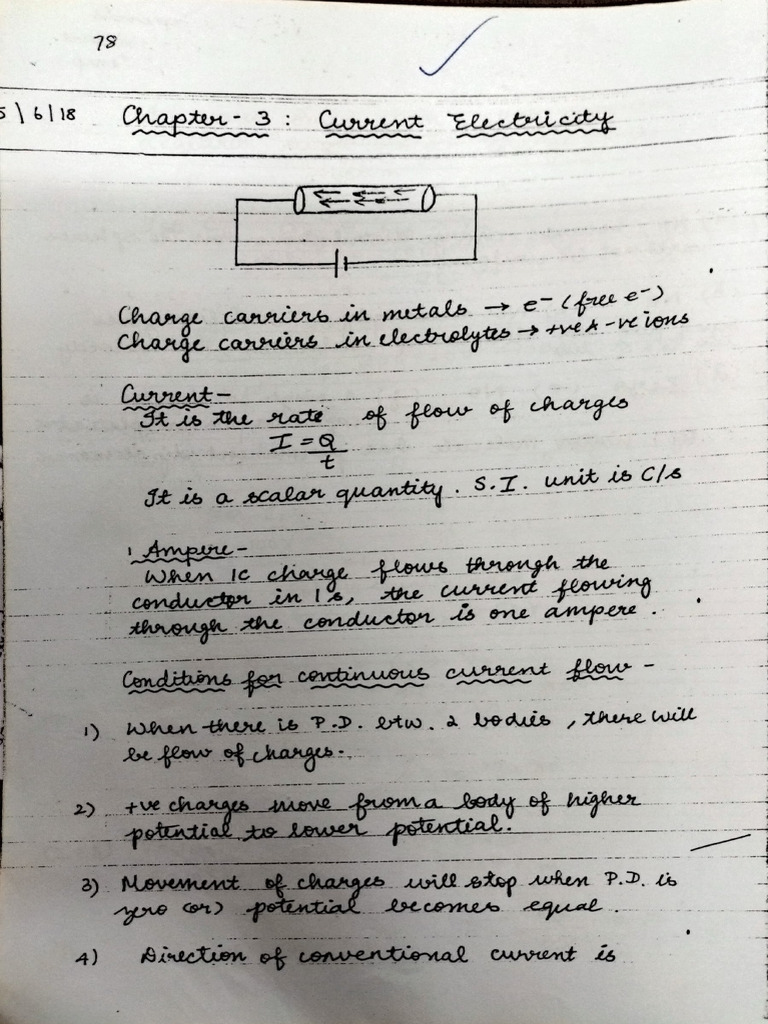 78
5/6/18 Chapter - 3 : Current Electricity
Charge carriers in metals → e⁻ (free e⁻)
Charge carriers in electrolytes → +ve & -ve ions
Current -
It is the rate of flow of charges
I = Q
t
It is a scalar quantity. S.I. unit is C/s
1 Ampere -
When 1C charge flows through the
conductor in 1s, the current flowing
through the conductor is one ampere.
Conditions for continuous current flow -
1) When there is P.D. btw. 2 bodies, there will
be flow of charges.
2) +ve charges move from a body of higher
potential to lower potential.
3) Movement of charges will stop when P.D. is
zero (or) potential becomes equal.
4) Direction of conventional current is